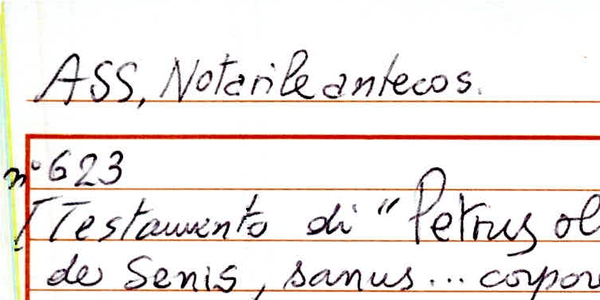 ASS, Notarile antecos.
n° 623
[Testamento di "Petrus ol
de Senis, sanus... corpor